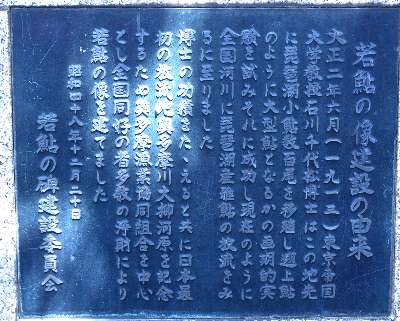 若鮎の像建設の由来
大正二年六月（一九一三）東京帝国
大学教授石川千代松博士はこの地先
に琵琶湖小鮎数百尾を移殖し遡上鮎
のように大型鮎となるかの画期的実
験を試みそれに成功し現在のように
全国河川に琵琶湖産稚鮎の放流をみ
るに至りました
博士の功績をたゝえると共に日本最
初の放流地奥多摩川大柳河原を記念
するため奥多摩漁業協同組合を中心
とし全国同好の者多数の浄財により
若鮎の像を建てました
昭和四十八年十二月二十日
若鮎の碑建設委員会